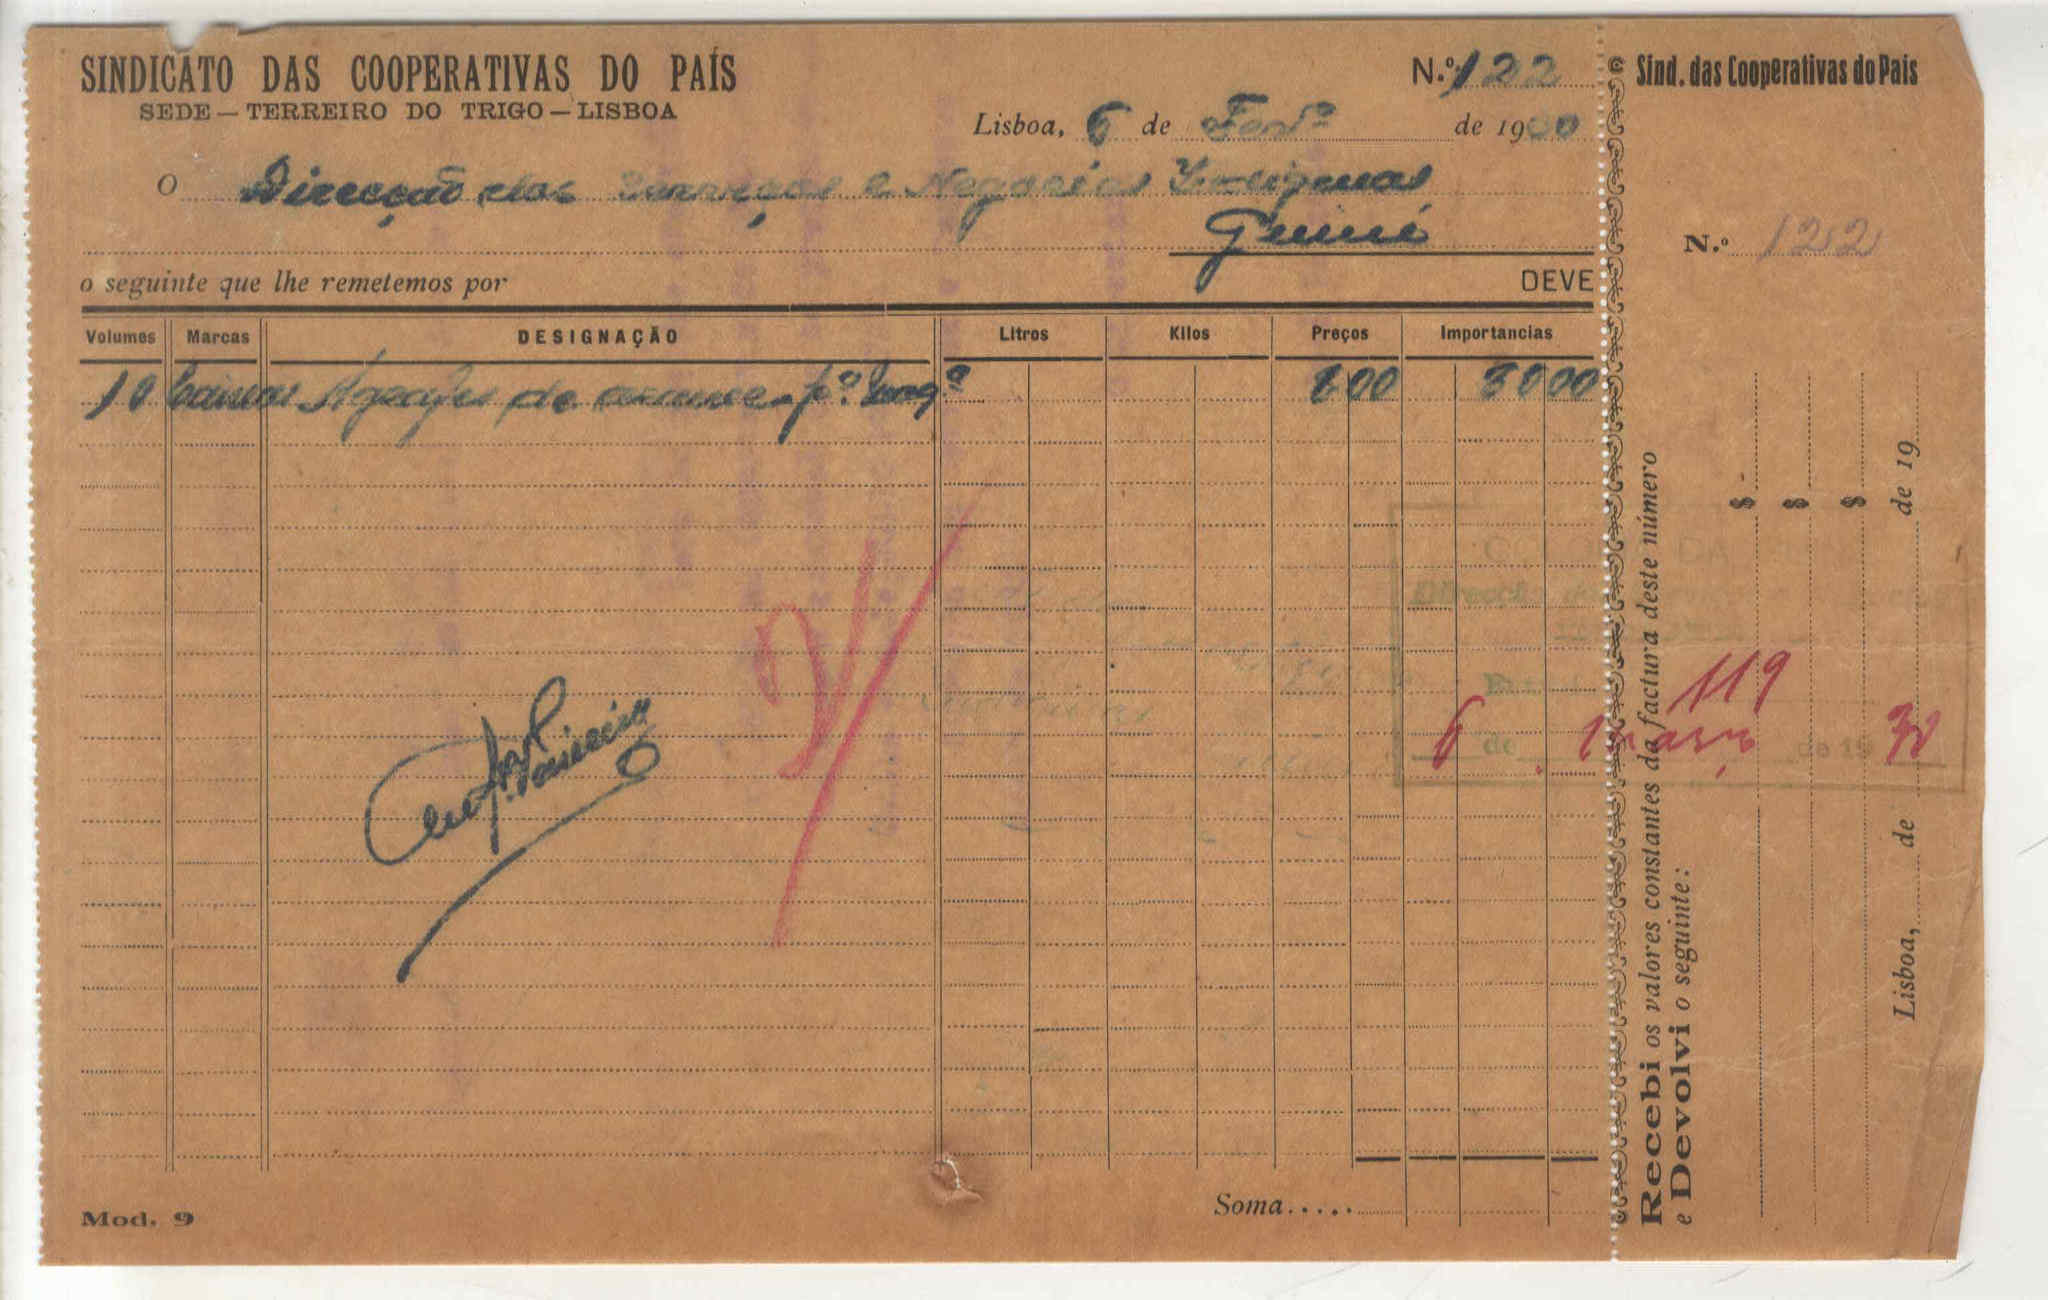 SINDICATO DAS COOPERATIVAS DO PAÍS
SEDE — TERREIRO DO TRIGO — LISBOA
N.º 122
Lisboa, 6 de Fev.º de 1930
O Direcção dos Serviços e Negocios Indigenas
Guiné
o seguinte que lhe remetemos por
DEVE
Volumes Marcas DESIGNAÇÃO Litros Kilos Preços Importancias
10 Caixas Agrafes de arame pº 800 8000
Soma.....
Mod. 9
Sind. das Cooperativas do Pais
N.º 122
Recebi os valores constantes da factura deste número
e Devolvi o seguinte:
$ $ $
Lisboa, de de 19
DA
Direcção
119
6 de Março de 1930